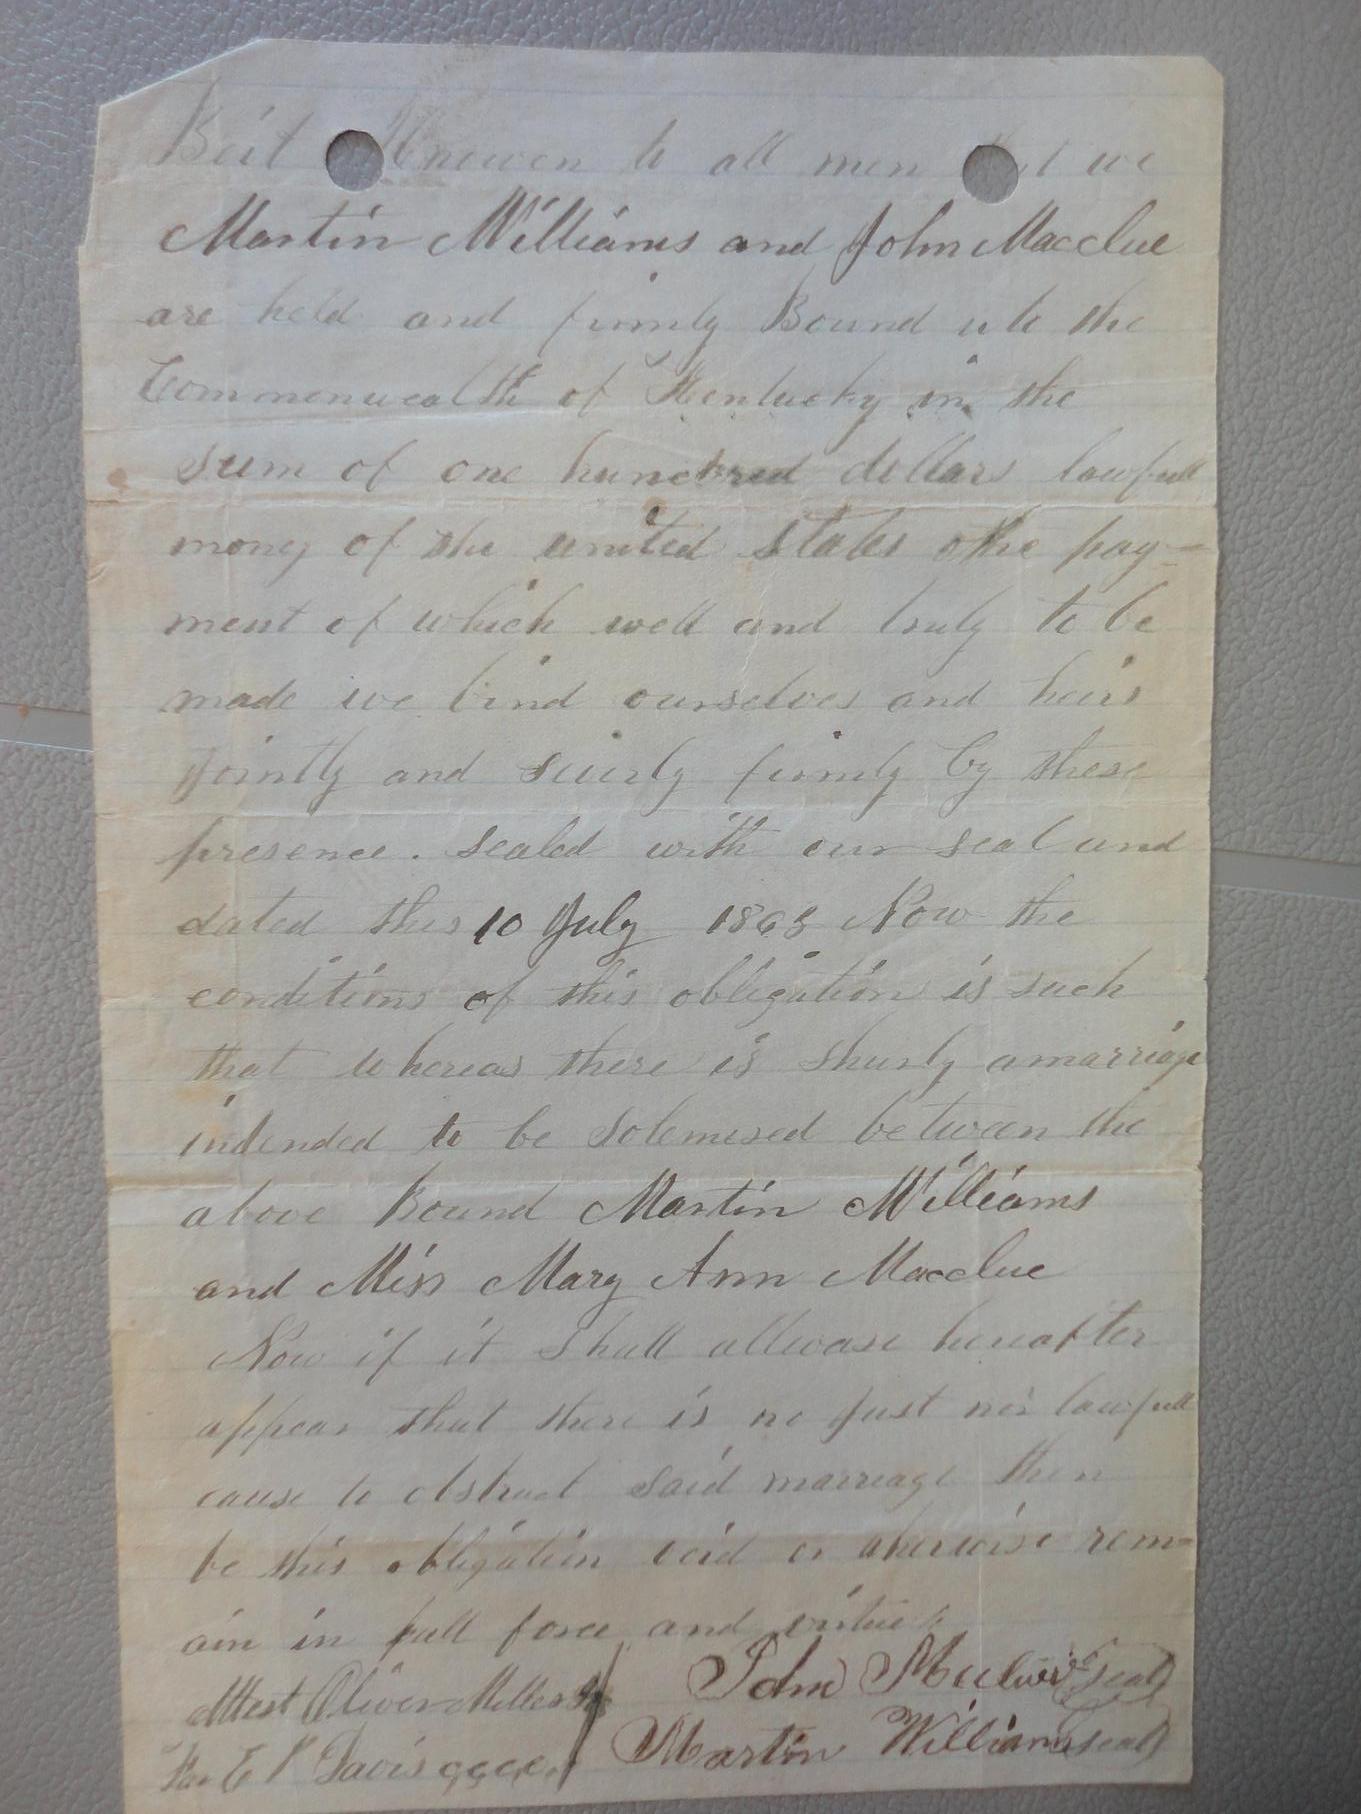 Beit Knowen to all men we
Martin Williams and John Macclue
are held and firmly Bound uto the
Commonwealth of Kentucky in the
sum of one hundred dollars lawfull
money of the united States othe pay=
ment of which well and truly to be
made we bind ourselves and heirs
jointly and seuirly firmly by these
presence. Sealed with our seal and
dated this 10 July 1863 Now the
conditions of this obligation is such
that whereas there is shurly a marriage
indended to be Solemised between the
above Bound Martin Williams
and Miss Mary Ann Macclue
Now if it Shall allwase hereafter
appear that there is no just nor lawfull
cause to obstruct said marriage then
be this obligation void or otherwise rem=
ain in full force and virtue
John (Seal)
Attest Oliver Miller
Martin Williams (seal)
Per E P Davis